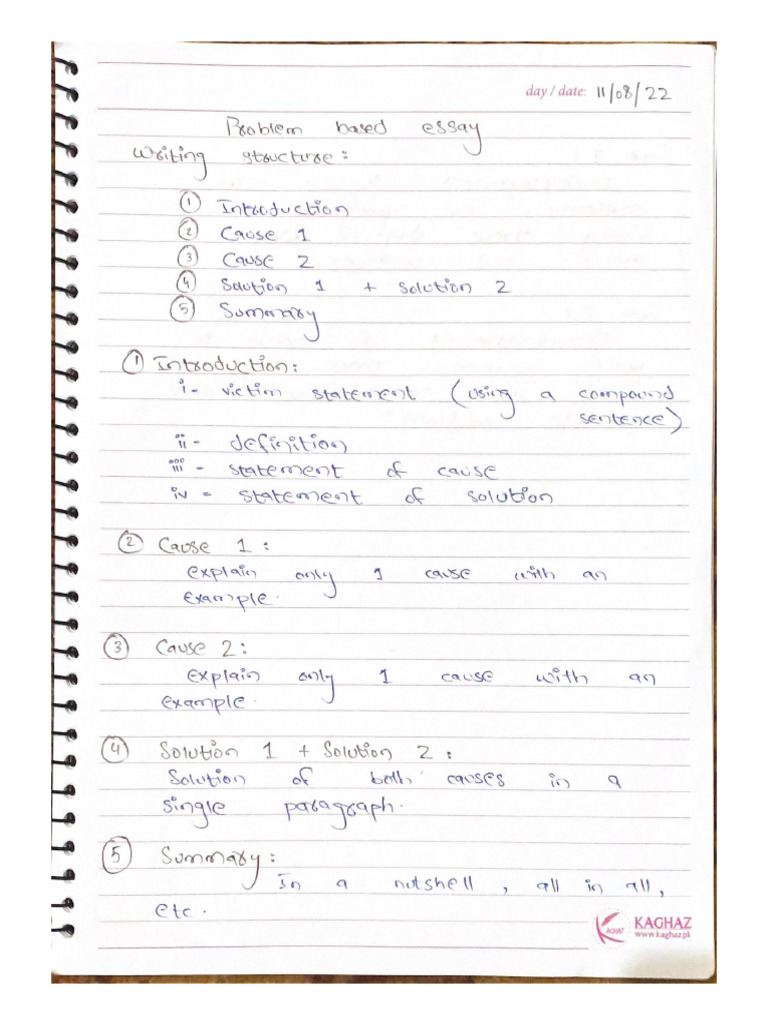 day / date: 11/08/22
Problem based essay
writing structure:
① Introduction
② Cause 1
③ Cause 2
④ Solution 1 + Solution 2
⑤ Summary
① Introduction:
i- victim statement (using a compound
sentence)
ii- definition
iii- statement of cause
iv- statement of solution
② Cause 1:
explain only 1 cause with an
example.
③ Cause 2:
explain only 1 cause with an
example.
④ Solution 1 + Solution 2:
Solution of both causes in a
single paragraph.
⑤ Summary:
In a nutshell, all in all,
etc.
KAGHAZ
www.kaghaz.pk